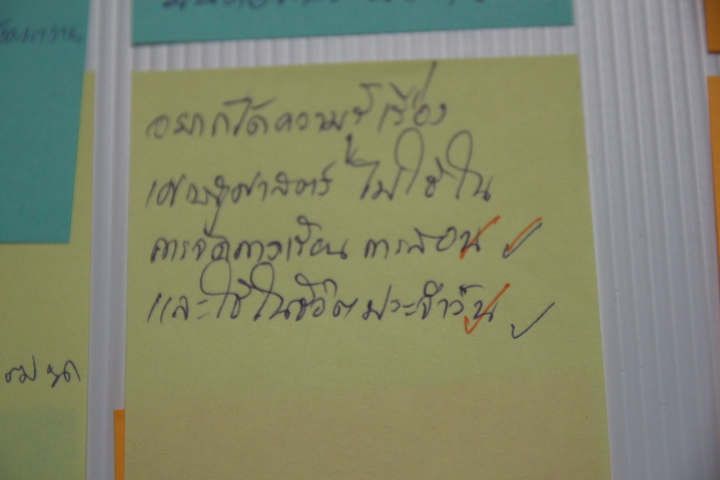 อยากได้ความรู้เรื่อง
เศรษฐศาสตร์ ไปใช้ใน
การจัดการเรียน การสอน
และใช้ในชีวิตประจำวัน